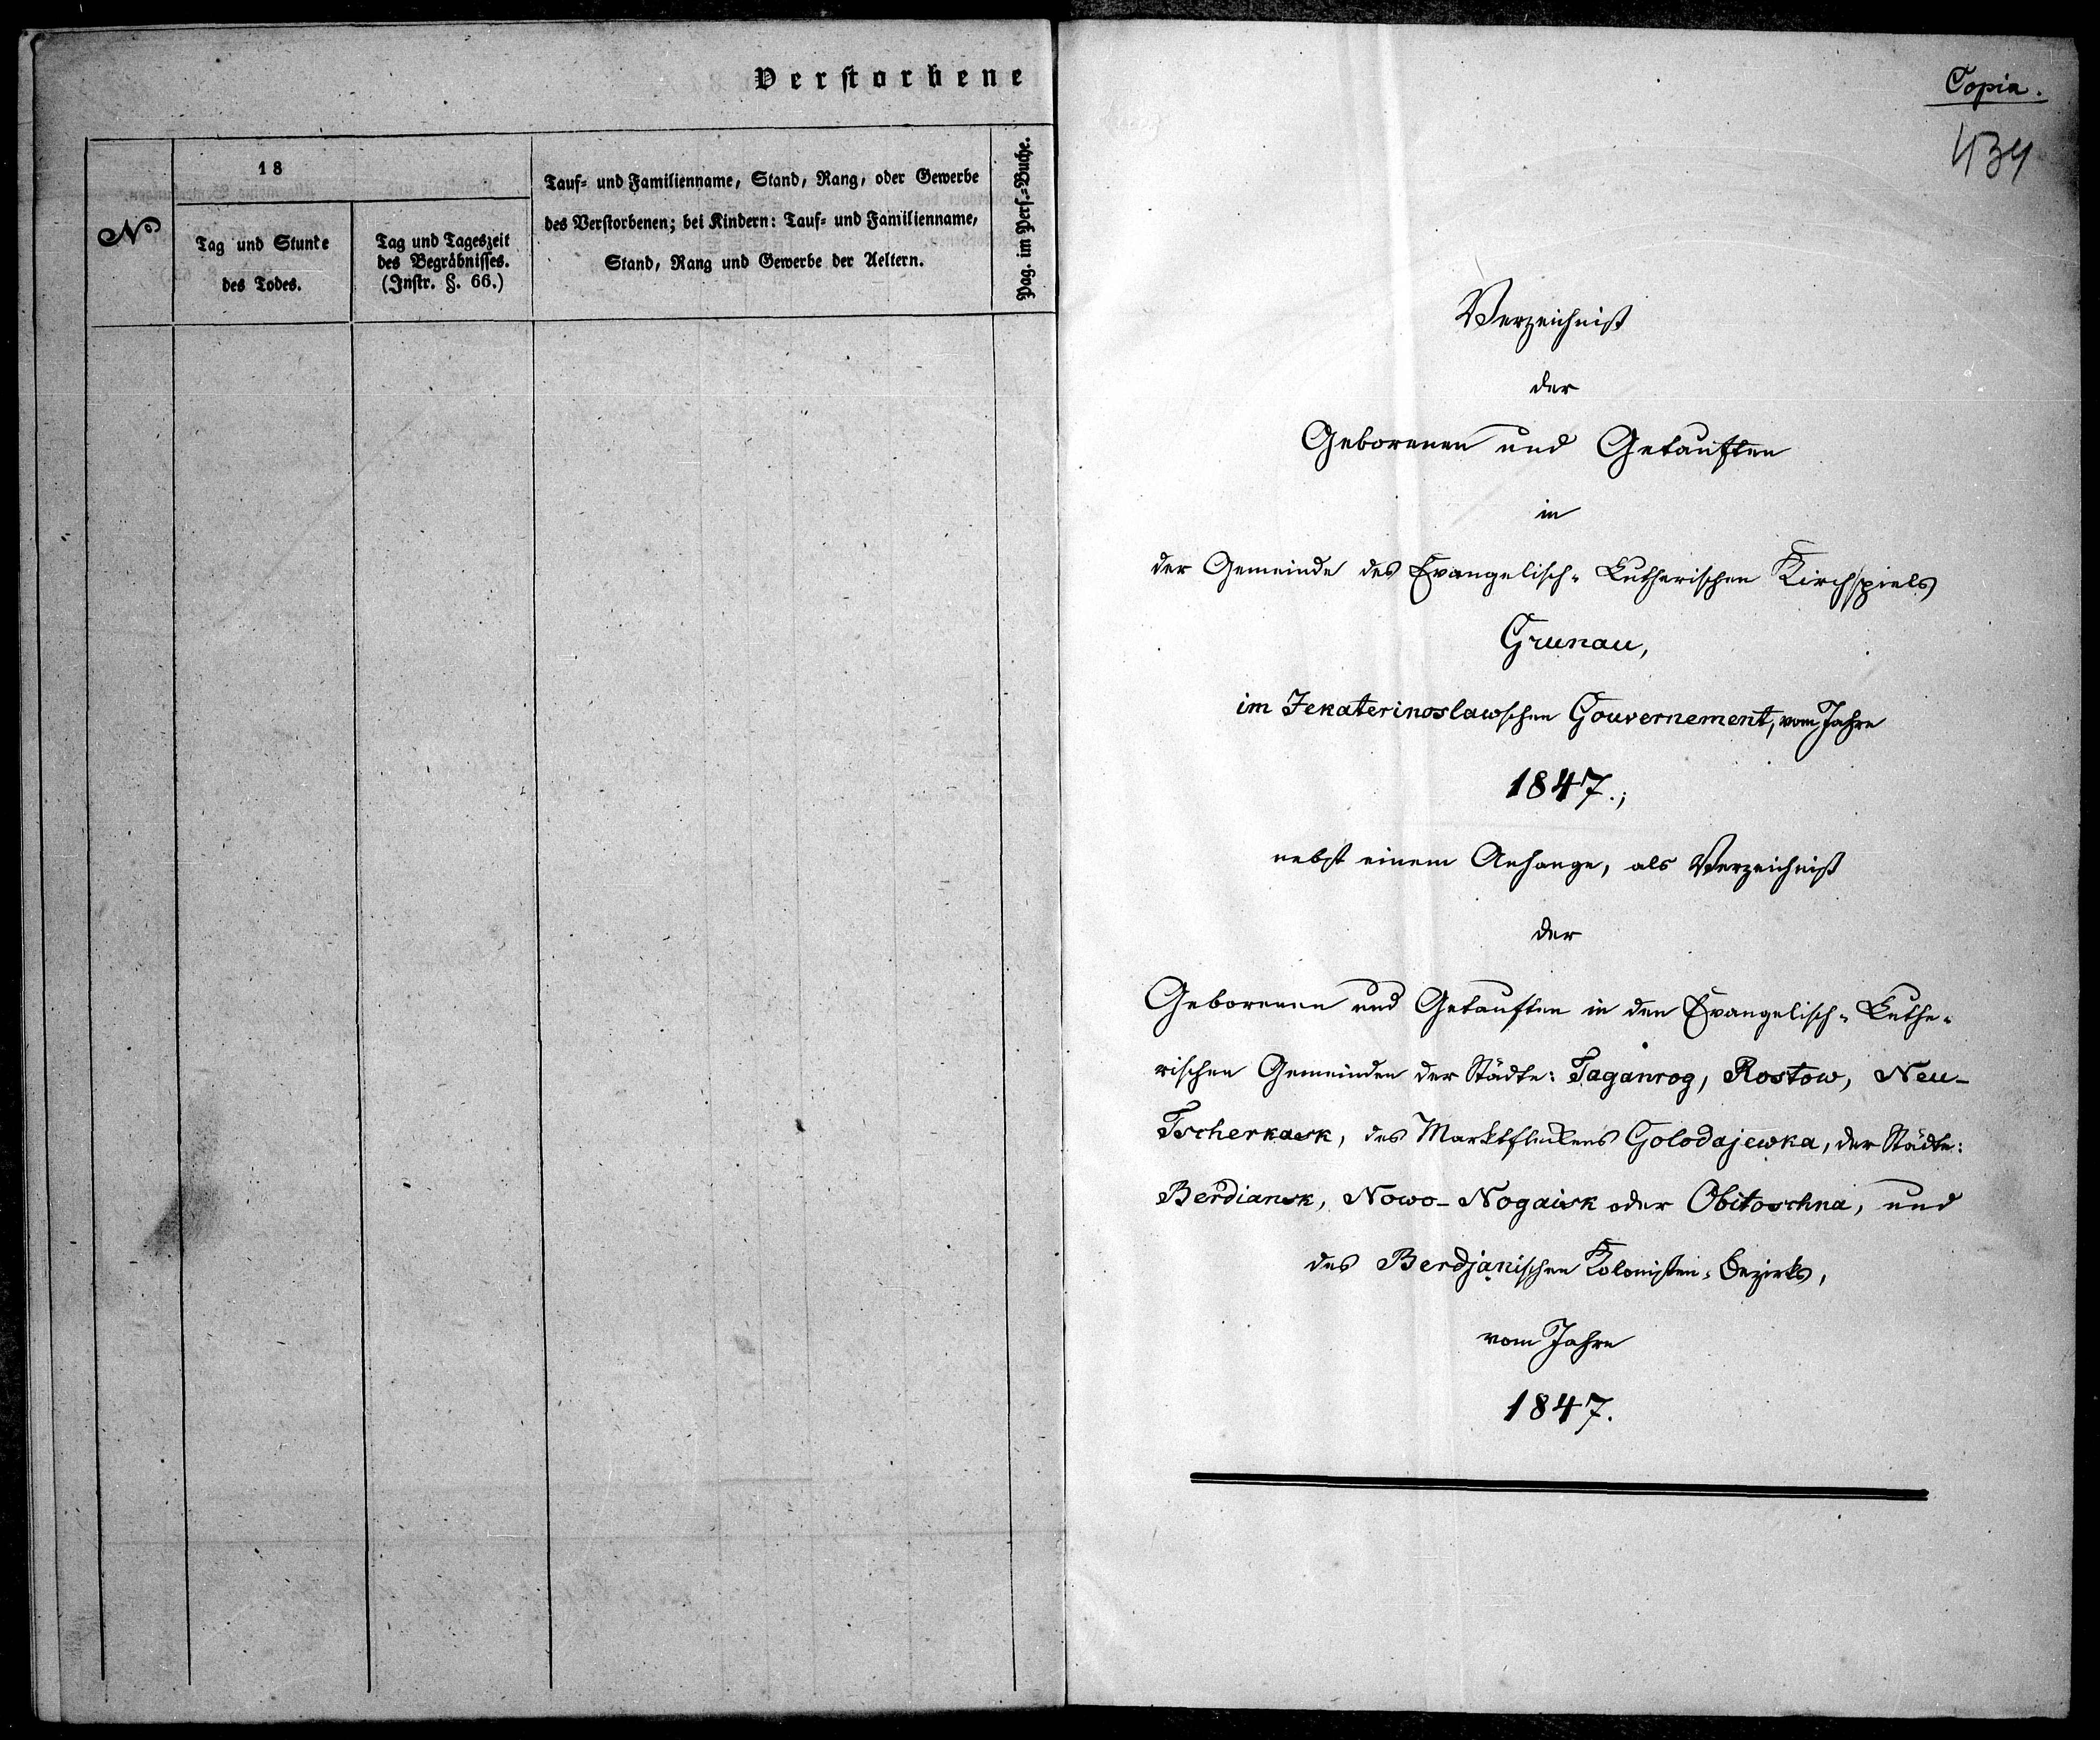 Verstorbene
№
18
Tag und Stunde
des Todes.
Tag und Tageszeit
des Begräbnisses.
(Instr. §. 66.)
Tauf- und Familienname, Stand, Rang, oder Gewerbe
des Verstorbenen; bei Kindern: Tauf- und Familienname,
Stand, Rang und Gewerbe der Aeltern.
Pag. im Pers.-Buche.
Copia.
434
Verzeichniß
der
Geborenen und Getauften
in
der Gemeinde des Evangelisch-Lutherischen Kirchspiels
Grunau,
im Jekaterinoslawschen Gouvernement, vom Jahre
1847.;
nebst einem Anhange, als Verzeichniß
der
Geborenen und Getauften in den Evangelisch-Luthe-
rischen Gemeinden der Städte: Taganrog, Rostow, Neu-
Tscherkask, des Marktfleckens Golodajewka, der Städte:
Berdiansk, Nowo-Nogaisk oder Obitoschna, und
des Berdjanischen Kolonisten-Bezirks,
vom Jahre
1847.